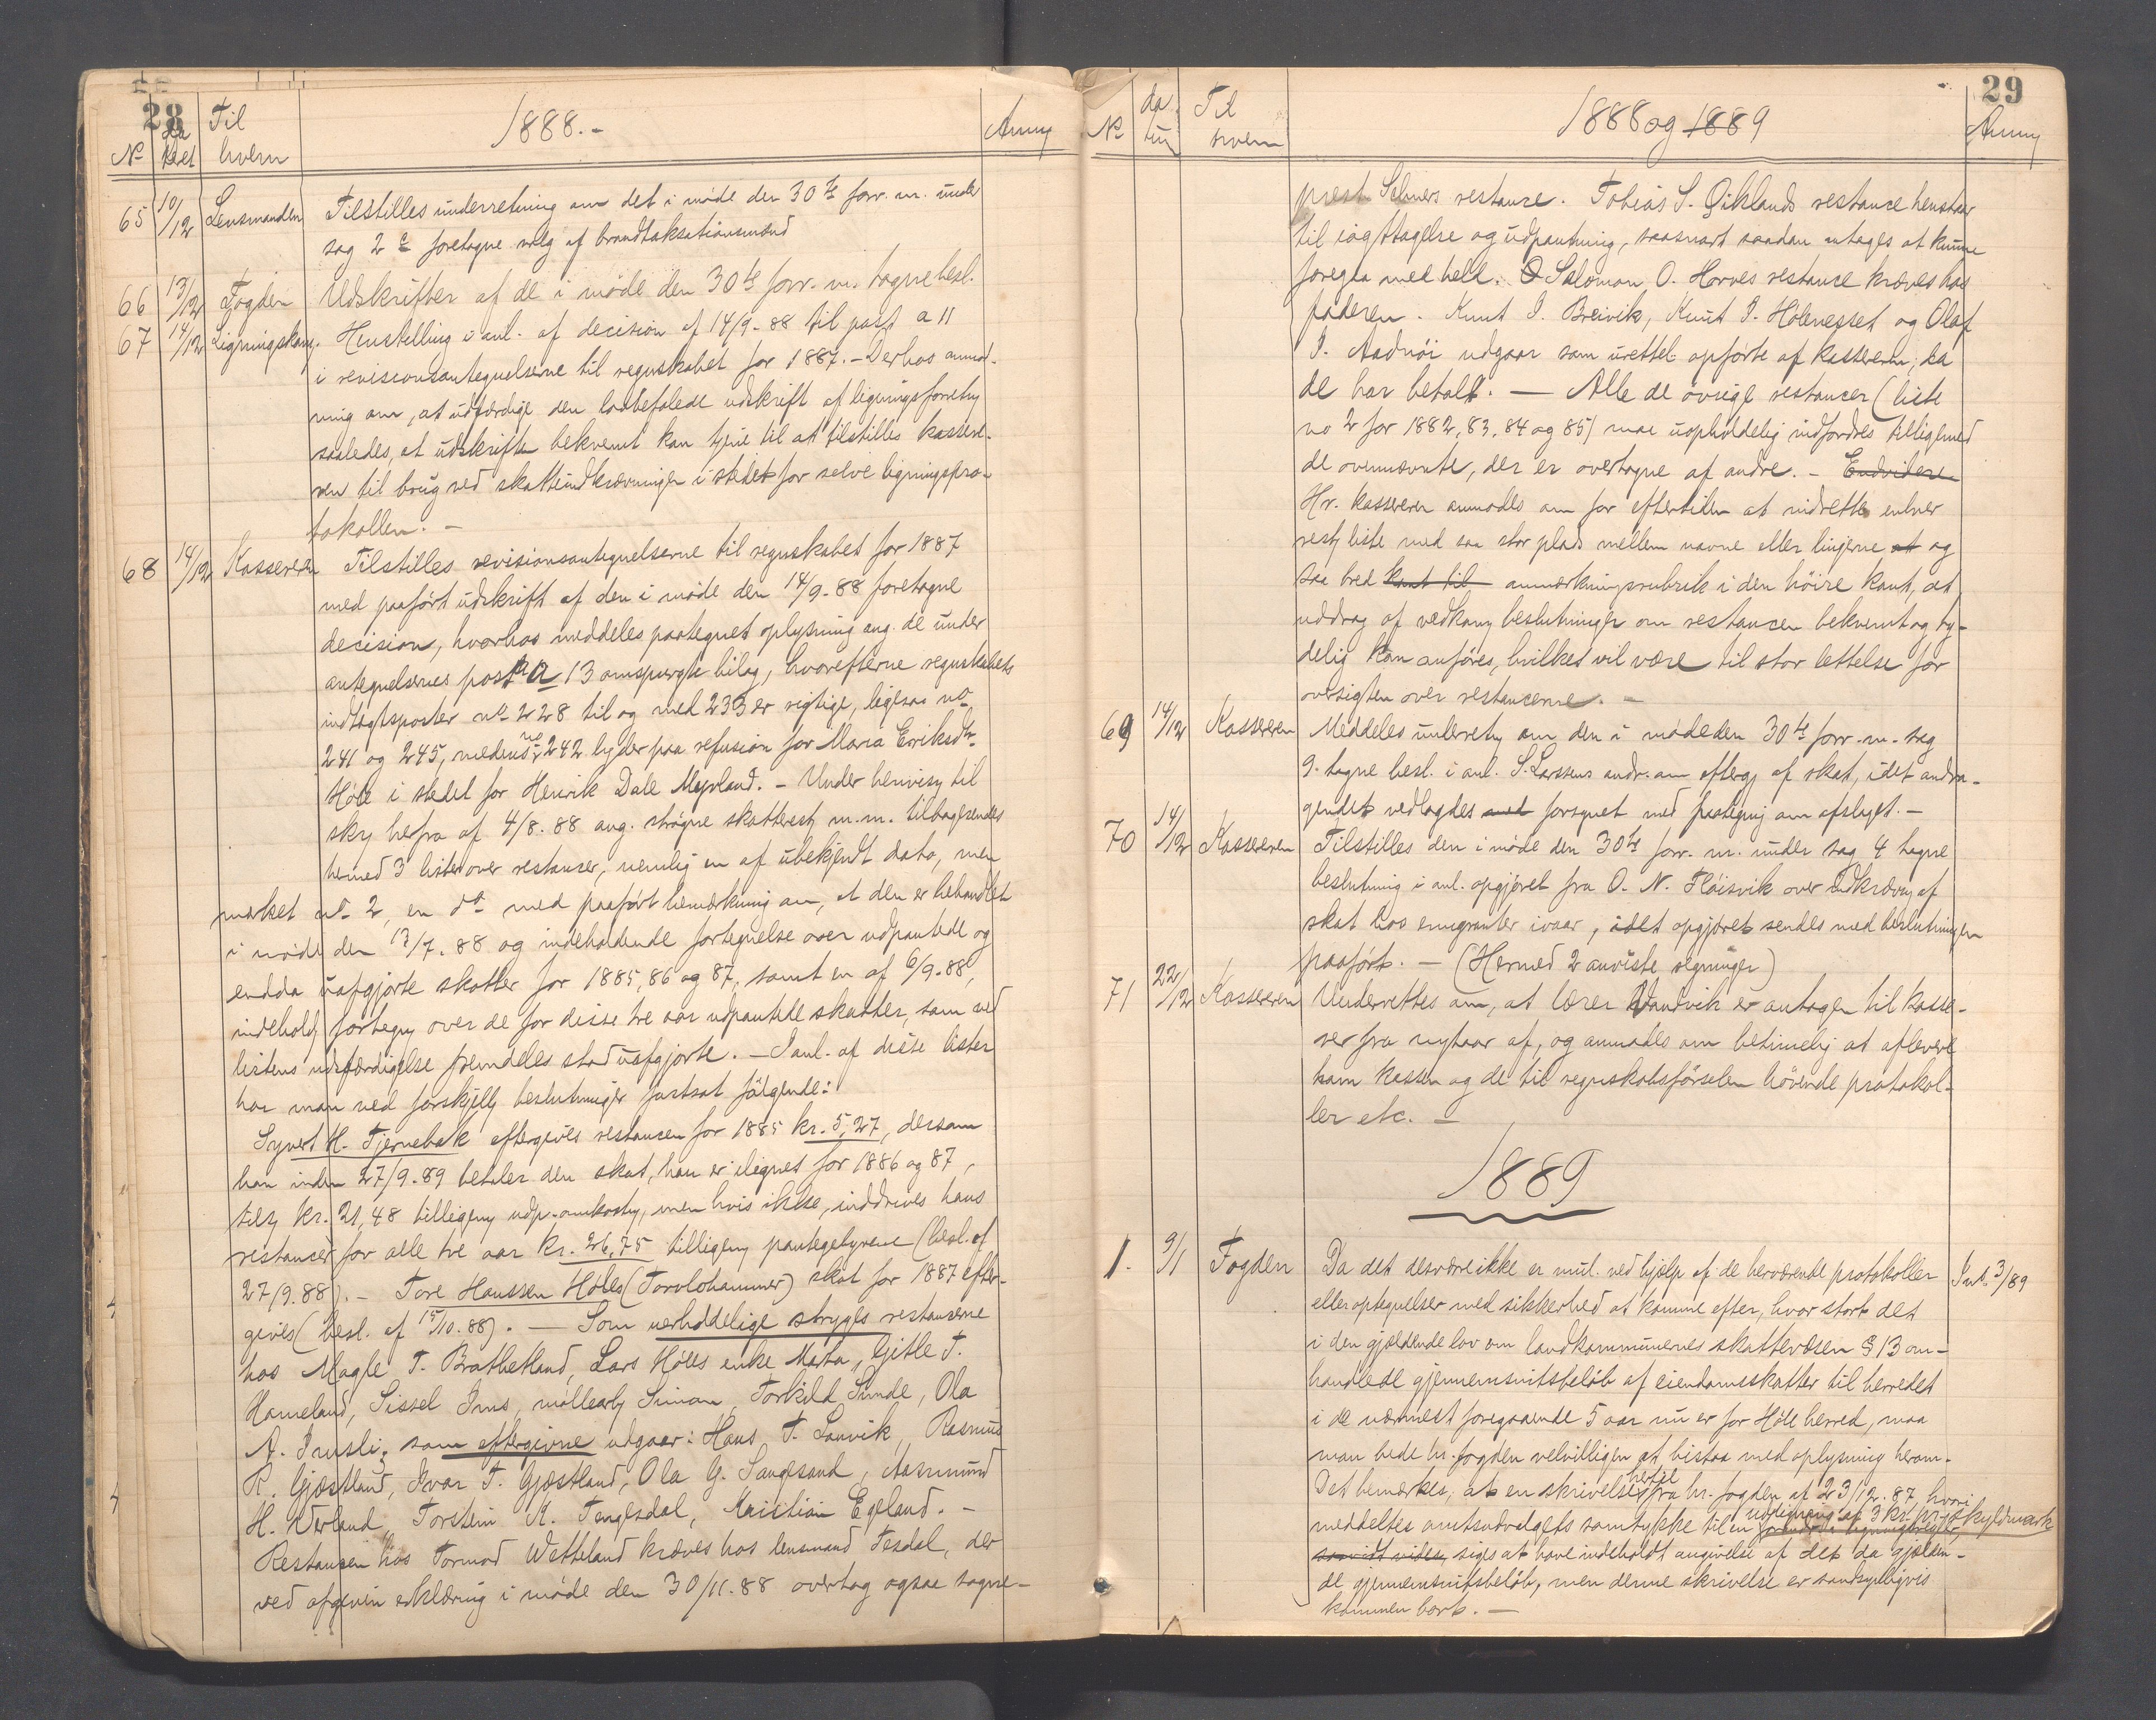 28
No
Da
teret
Til
hvem
1888.-
Anm
65 10/12 Lensmanden Tilstilles underretning om det i møde den 30te forr. m. under
sag 2 foretagne valg af brandtaksationsmænd
66 13/12 Fogden Udskrifter af de i møde den 30te forr. m. tagne besl.
67 14/12 Ligningskom. Henstilling i anl. af decision af 14/9-88 til post a 11
i revisionsantegnelserne til regnskabet for 1887. - Derhos anmod-
ning om, at udfærdige den lovbefalede udskrift af ligningsforretn
saaledes, at udskriften bekvemt kan tjene til at tilstilles kassere-
ren til brug ved skatteindkrævningen i stedet for selve ligningspro-
tokollen. -
68 14/12 Kassereren Tilstilles revisionsantegnelserne til regnskabet for 1887
med paaført udskrift af den i møde den 14/9-88 foretagne
decision, hvorhos meddeles paategnet oplysning ang. de under
antegnelsernes post a 13 omspurgte bilag, hvorefterne regnskabets
indtægtsposter no 228 til og med 233 er rigtige, ligesaa no
241 og 245, medens no 242 lyder paa refusion for Maria Eriksdtr.
Høle i stedet for Henrik Dale Myrland. - Under henvisn til
skr herfra af 4/8-88 ang. strøgne skatterest m.m. tilbagesendes
hermed 3 lister over restancer, nemlig en af ubekjendt dato, men
mærket no 2, en do med paaført bemærkning om, at den er behandlet
i møde den 17/7.88 og indeholdende fortegnelse over udpantede og
endda uafgjorte skatter for 1885, 86 og 87, samt en af 6/9-88,
indehold fortegn over de for disse tre aar udpantede skatter, som ved
listens udfærdigelse fremdeles stod uafgjorte. - I anl. af disse lister
har man ved forskjell beslutninger fastsat følgende:
Syvert H. Tjernebak eftergives restancen for 1885 kr. 5,27, dersom
han inden 27/9.89 betaler den skat, han er ilignet for 1886 og 87,
tils kr. 21,48 tilligem udp. omkostn, men hvis ikke, inddrives hans
restancer for alle tre aar kr. 26,75 tilligem pantegebyrene (besl. af
27/9.88). - Tore Hanssen Høles (Torvlohammer) skat for 1887 efter-
gives (besl. af 15/10.88). - Som uerholdelige stryges restancerne
hos Magle T. Brattetland, Lars Høles enke Marta, Gitle T.
Hameland, Sissel Ims, møllearb Simon, Torkild Sunde, Ola
A. Imsli; som eftergivne udgaar: Hans T. Lauvik, Rasmus
R. Gjøstland, Ivar T. Gjøstland, Ola G. Sangesand, Aasmund
H. Verland, Torstein K. Tengesdal, Kristian Egeland. -
Restancen hos Tormod Wetteland kræves hos lensmand Tesdal, der
ved afgiven erklæring i møde den 30/11.88 overtog ogsaa sogne-
29
No
da
tum
Til
hvem
1888 og 1889
Anm
prest Selmers restance. Tobias S. Øiklands restance henstaar
til iagttagelse og udpantning, saasnart saadan antages at kunne
foregaa med held. Salomon O. Harves restance kræves hos
faderen. Knut I. Breivik, Knut P. Holenesset og Olaf
I. Aadnøi udgaar som urettel opførte af kassereren, da
de har betalt. - Alle de øvrige restancer (liste
no 2 for 1882, 83, 84 og 85) maa uopholdelig indfordres tilligemed
de ovennævnte, der er overtagne af andre. - Endvidere
Hr. kassereren anmodes om for eftertiden at indrette enhver
rest liste med saa stor plads mellem navne eller linjerne at og
saa bred kant til anmærkningsrubrik i den høire kant, at
uddrag af vedkom beslutninger om restancen bekvemt og ty-
delig kan anføres, hvilket vil være til stor lettelse for
oversigten over restancerne. -
69 14/12 Kassereren Meddeles underretn om den i møde den 30te forr. m. sag
9. tagne besl. i anl. S. Larssens andr. om efterg af skat, idet andra-
gendet vedlagdes med forsynet med paategning om afslaget. -
70 14/12 Kassereren Tilstilles den i møde den 30te forr. m. under sag 4 tagne
beslutning i anl. opgjøret fra O. N. Fløisvik over indkrævn af
skat hos emigranter ivaar, idet opgjøret sendes med beslutningen
paaført. - (Hermed 2 anviste regninger)
71 22/12 Kassereren Underrettes om, at lærer Vandvik er antagen til kasse-
rer fra nytaar af, og anmodes om betimelig at aflevere
ham kassen og de til regnskabsførselen hørende protokol-
ler etc. -
1889
1. 9/1 Fogden Da det desværre ikke er mul. ved hjælp af de herværende protokoller Ink. 3/89
eller optegnelser med sikkerhed at komme efter, hvor stort det
i den gjældende lov om landkommunernes skattevæsen § 13 om-
handlede gjennemsnitsbeløb af eiendomsskatter til herredet
i de nærmest foregaaende 5 aar nu er for Høle herred, maa
man bede hr. fogden velvilligen at bistaa med oplysning herom.
Det bemærkes, at en skrivelse hertil fra hr. fogden af 23/12.87, hvori
meddeltes amtsudvalgets samtykke til en udligning af 3 kr. pr. skyldmark
saavidt vides, siges at have indeholdt angivelse af det da gjælden-
de gjennemsnitsbeløb, men denne skrivelse er sandsynligvis
kommen bort. -